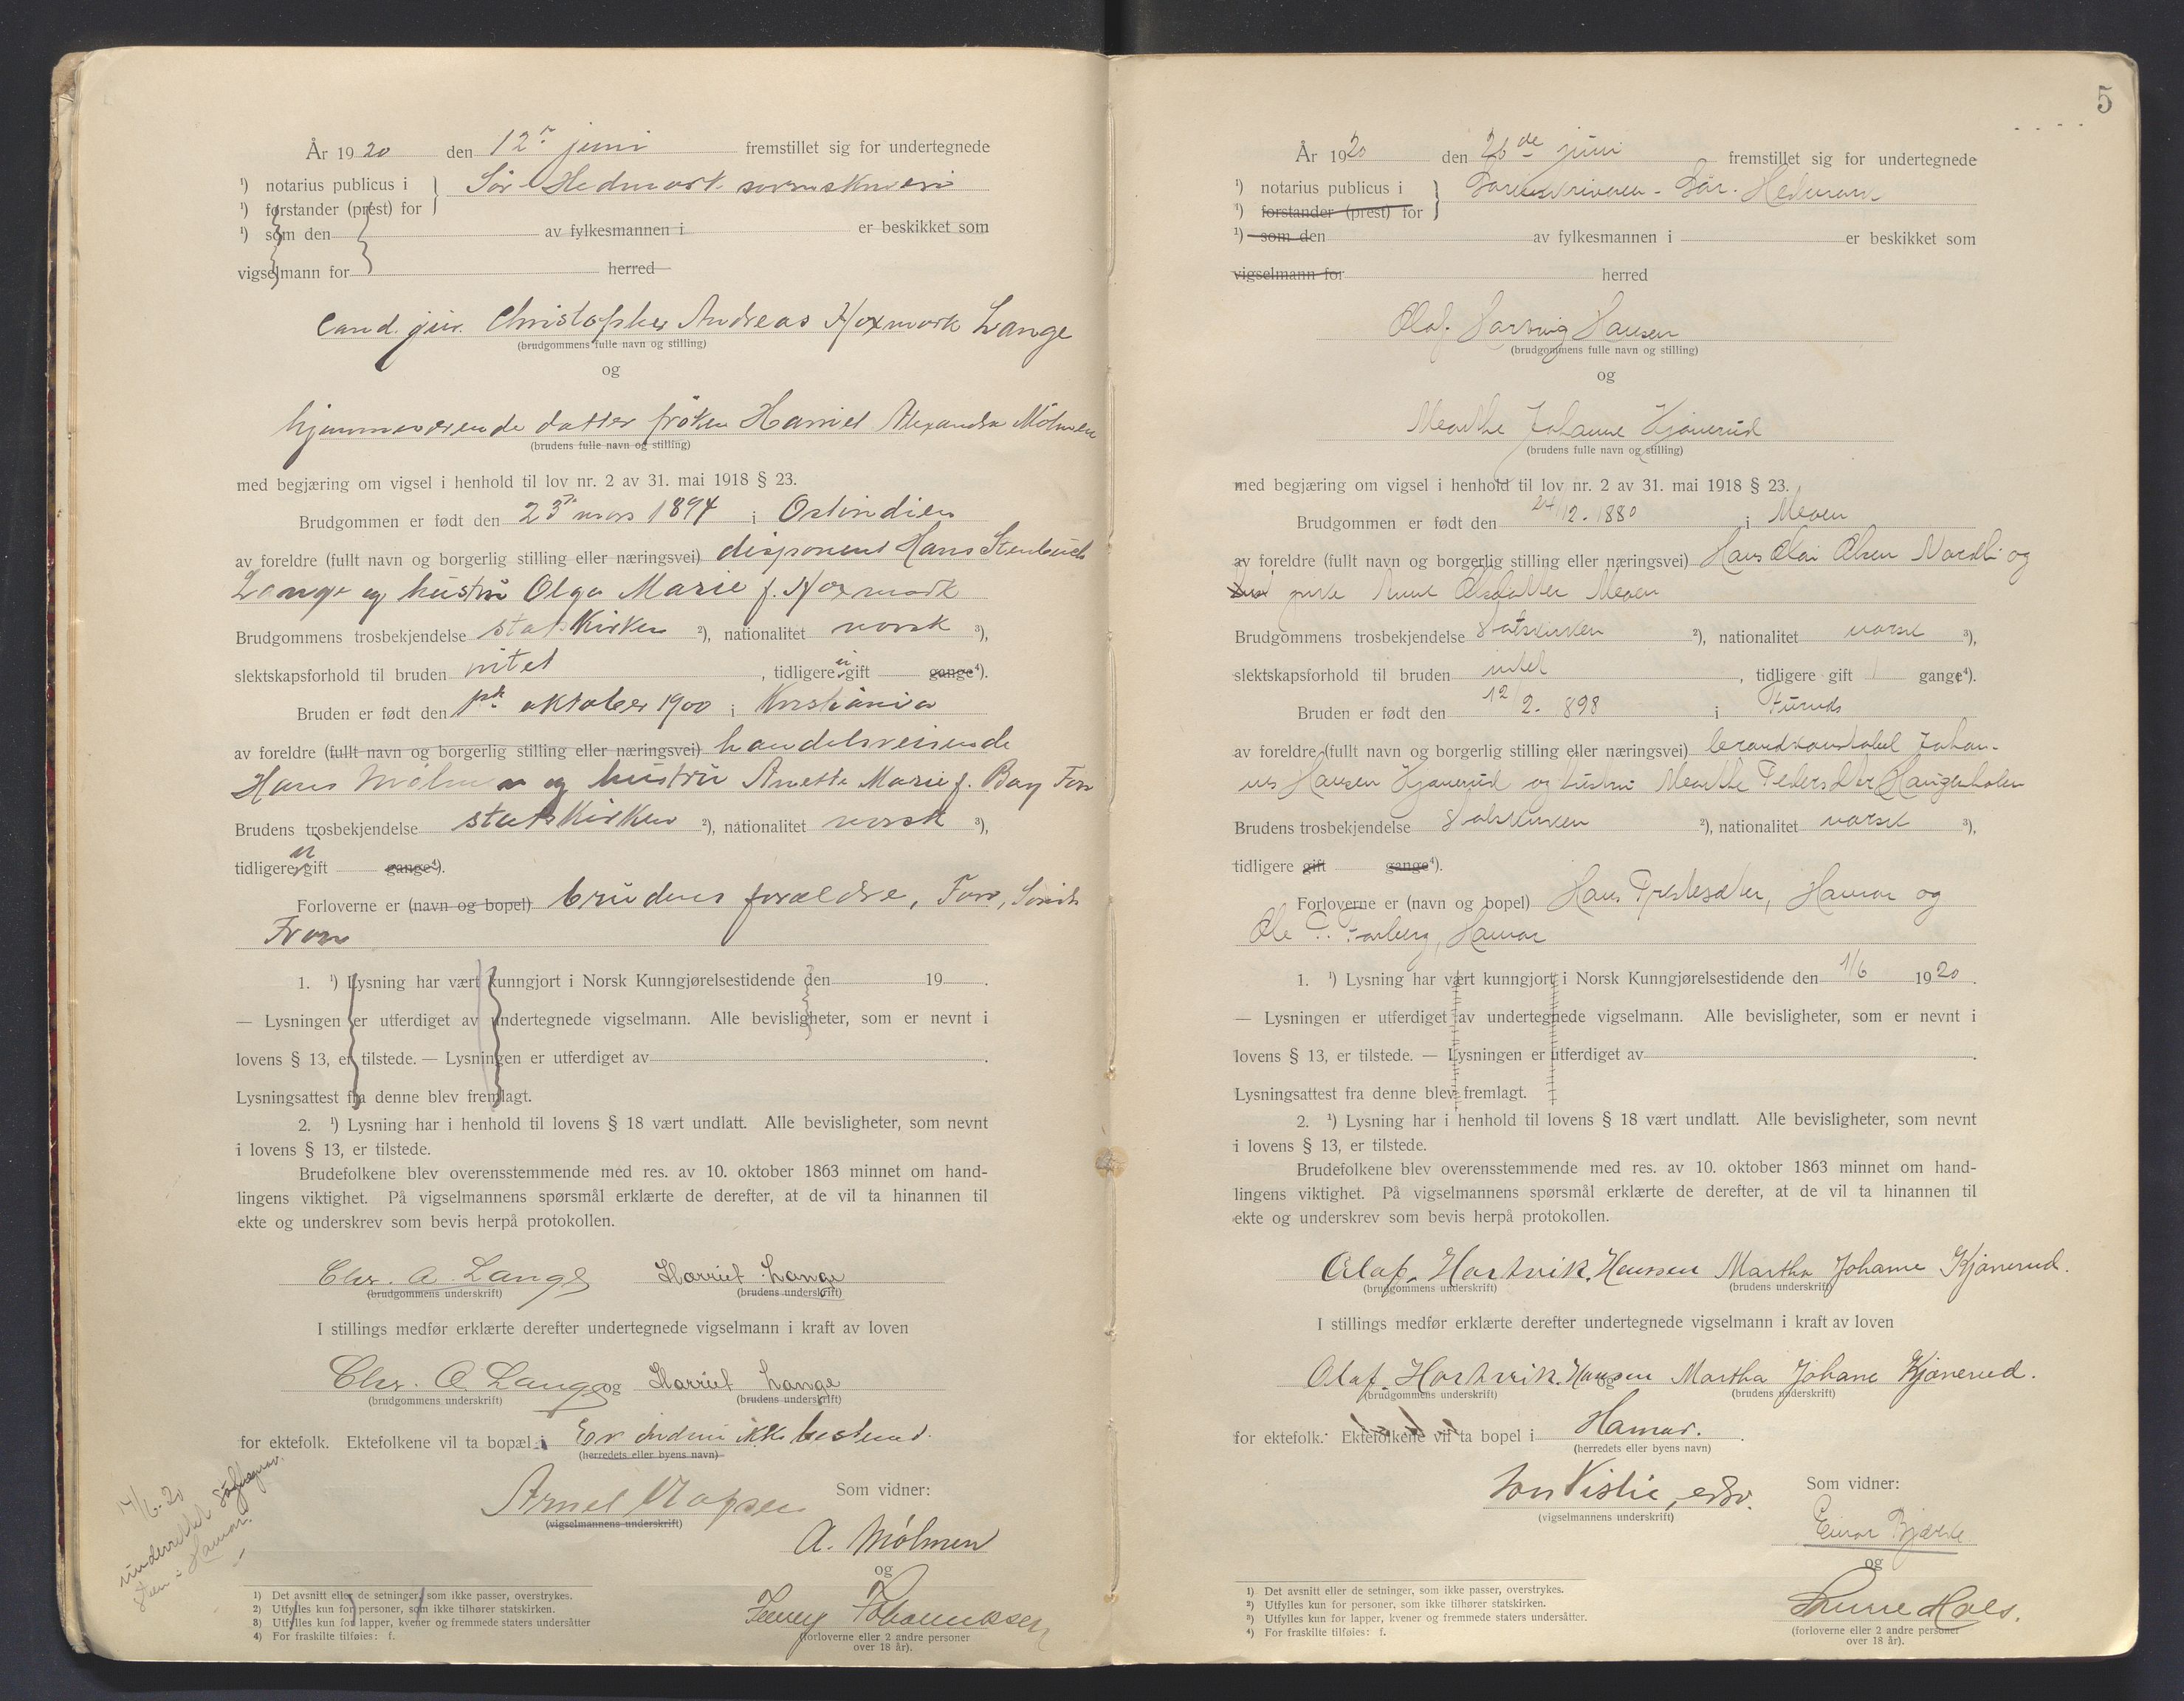 År 1920 den 12te juni fremstillet sig for undertegnede
¹) notarius publicus i Sør-Hedmark sorenskriveri
¹) forstander (prest) for
¹) som den av fylkesmannen i er beskikket som
vigselmann for herred
Cand. jur. Christopher Andreas Hoxmark Lange
(brudgommens fulle navn og stilling)
og
hjemmeværende datter frøken Harriet Alexandra Mølmen
(brudens fulle navn og stilling)
med begjæring om vigsel i henhold til lov nr. 2 av 31. mai 1918 § 23.
Brudgommen er født den 23de mars 1894 i Ostindien
av foreldre (fullt navn og borgerlig stilling eller næringsvei) disponent Hans Stenbuch
Lange og hustru Olga Marie f. Hoxmark
Brudgommens trosbekjendelse statskirken ²), nationalitet norsk ³),
slektskapsforhold til bruden intet , tidligere ei gift gange⁴).
Bruden er født den 1ste oktober 1900 i Kristiania
av foreldre (fullt navn og borgerlig stilling eller næringsvei) handelsreisende
Hans Mølmen og hustru Anette Marie f. Bay
Brudens trosbekjendelse statskirken ²), nationalitet norsk ³),
tidligere ei gift gange⁴).
Forloverne er (navn og bopel) brudens forældre,
Fron
1. ¹) Lysning har vært kunngjort i Norsk Kunngjørelsestidende den 19 .
— Lysningen er utferdiget av undertegnede vigselmann. Alle bevisligheter, som er nevnt i
lovens § 13, er tilstede. — Lysningen er utferdiget av .
Lysningsattest fra denne blev fremlagt.
2. ¹) Lysning har i henhold til lovens § 18 vært undlatt. Alle bevisligheter, som nevnt
i lovens § 13, er tilstede.
Brudefolkene blev overensstemmende med res. av 10. oktober 1863 minnet om hand-
lingens viktighet. På vigselmannens spørsmål erklærte de derefter, at de vil ta hinannen til
ekte og underskrev som bevis herpå protokollen.
Chr. A. Lange Harriet Lange
(brudgommens underskrift) (brudens underskrift)
I stillings medfør erklærte derefter undertegnede vigselmann i kraft av loven
Chr. A. Lange og Harriet Lange
(brudgommens underskrift) (brudens underskrift)
for ektefolk. Ektefolkene vil ta bopæl i Er endnu ikke bestemt.
(herredets eller byens navn)
(vigselmannens underskrift)
Som vidner:
A. Mølmen
og
(forloverne eller 2 andre personer
over 18 år).
14/6-20
underrettet
Hamar.
1) Det avsnitt eller de setninger, som ikke passer, overstrykes.
2) Utfylles kun for personer, som ikke tilhører statskirken.
3) Utfylles kun for lapper, kvener og fremmede staters undersåtter
4) For fraskilte tilføies: f.
5
År 1920 den 26de juni fremstillet sig for undertegnede
¹) notarius publicus i Sorenskriveren - Sør-Hedmark
¹) forstander (prest) for
¹) som den av fylkesmannen i er beskikket som
vigselmann for herred
Olaf Hartvig Hansen
(brudgommens fulle navn og stilling)
og
Marthe Johanne Kjønerud
(brudens fulle navn og stilling)
med begjæring om vigsel i henhold til lov nr. 2 av 31. mai 1918 § 23.
Brudgommen er født den 24/12. 1880 i Moen
av foreldre (fullt navn og borgerlig stilling eller næringsvei) Hans Olai Olsen Nordli og
pike Anne Olsdatter Moen
Brudgommens trosbekjendelse Statskirken ²), nationalitet norsk ³),
slektskapsforhold til bruden intet , tidligere gift 1 gange⁴).
Bruden er født den 12/2. 898 i Furnes
av foreldre (fullt navn og borgerlig stilling eller næringsvei) brandkonstabel Johan-
nes Hansen Kjønerud og hustru Marthe Pedersdtr Haugenholen
Brudens trosbekjendelse Statskirken ²), nationalitet norsk ³),
tidligere gift gange⁴).
Forloverne er (navn og bopel) Hans Prestesæter, Hamar og
Ole P. Farberg, Hamar
1. ¹) Lysning har vært kunngjort i Norsk Kunngjørelsestidende den 1/6 1920.
— Lysningen er utferdiget av undertegnede vigselmann. Alle bevisligheter, som er nevnt i
lovens § 13, er tilstede. — Lysningen er utferdiget av .
Lysningsattest fra denne blev fremlagt.
2. ¹) Lysning har i henhold til lovens § 18 vært undlatt. Alle bevisligheter, som nevnt
i lovens § 13, er tilstede.
Brudefolkene blev overensstemmende med res. av 10. oktober 1863 minnet om hand-
lingens viktighet. På vigselmannens spørsmål erklærte de derefter, at de vil ta hinannen til
ekte og underskrev som bevis herpå protokollen.
Olaf. Hartvik. Hanssen Martha Johane Kjønerud.
(brudgommens underskrift) (brudens underskrift)
I stillings medfør erklærte derefter undertegnede vigselmann i kraft av loven
Olaf. Hartvik. Hansen og Martha Johane Kjønerud.
(brudgommens underskrift) (brudens underskrift)
for ektefolk. Ektefolkene vil ta bopel i Hamar.
(herredets eller byens navn)
(vigselmannens underskrift)
Som vidner:
Einar Bjærke
og
(forloverne eller 2 andre personer
over 18 år).
1) Det avsnitt eller de setninger, som ikke passer, overstrykes.
²) Utfylles kun for personer, som ikke tilhører statskirken.
³) Utfylles kun for lapper, kvener og fremmede staters undersåtter.
⁴) For fraskilte tilføies: f.